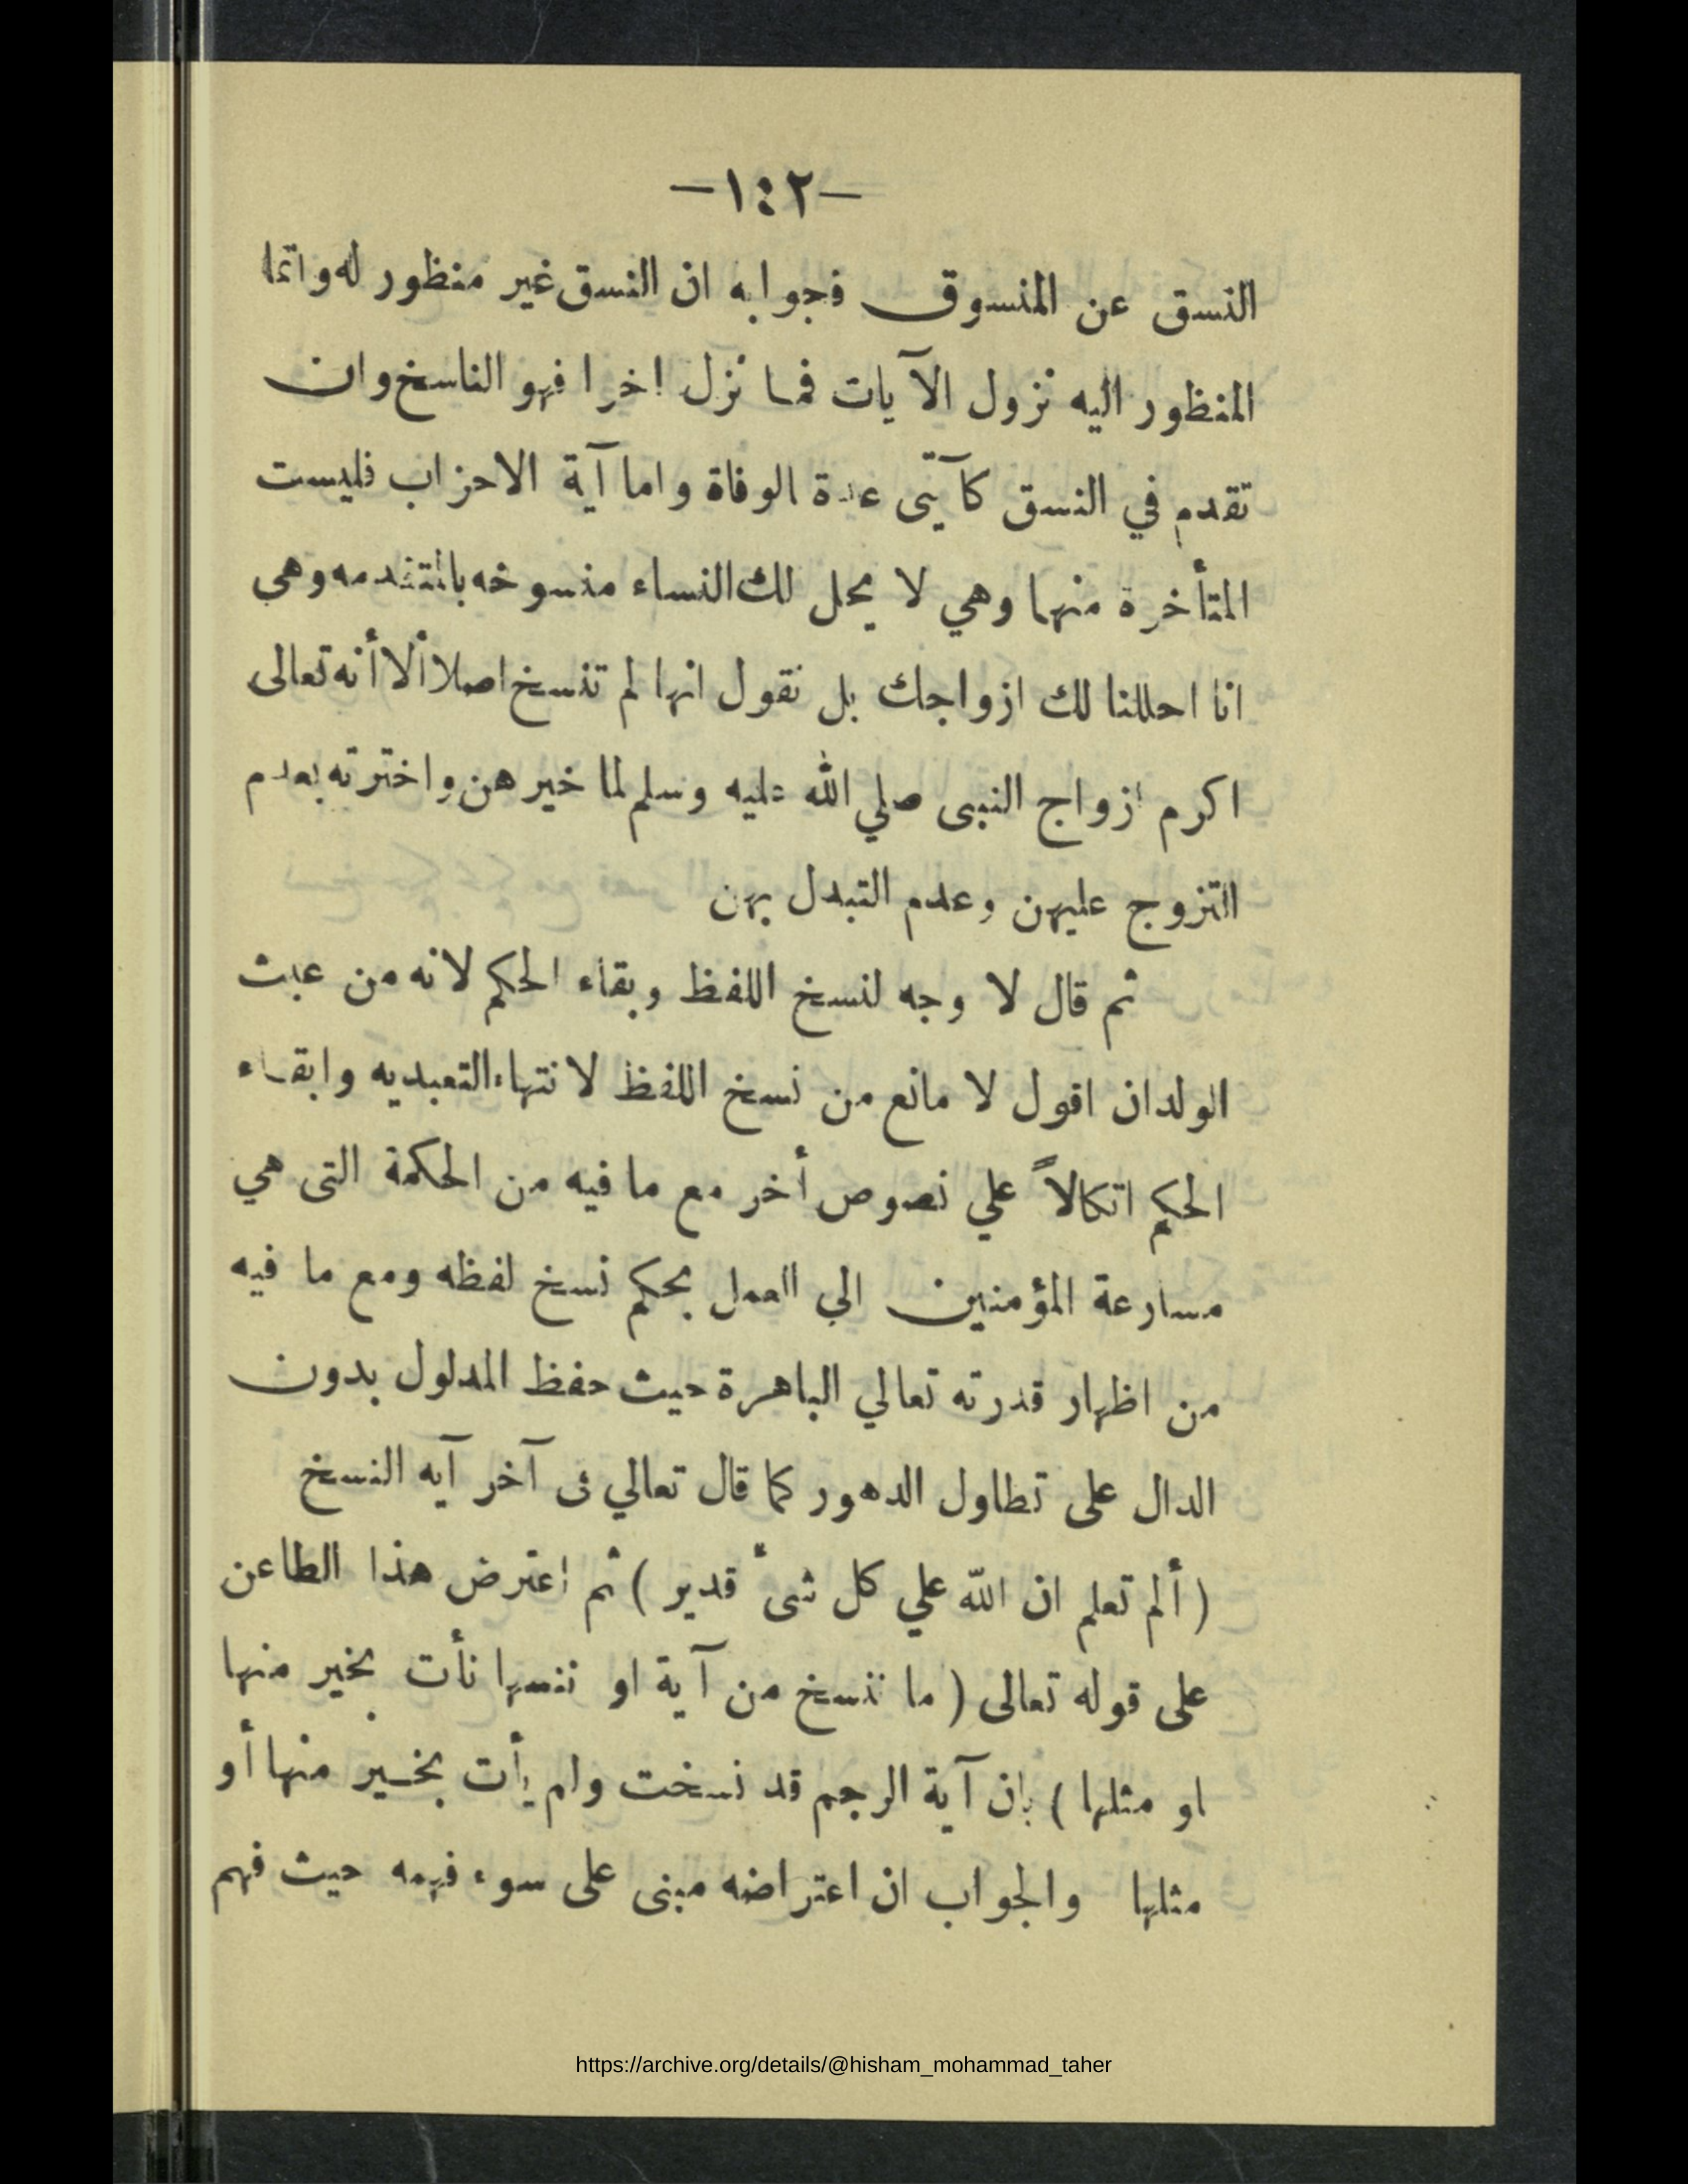 —١٤٢—
النسق عن المنسوق فجوابه ان النسق غير منظور له وانما
المنظور اليه نزول الآيات فما نزل اخرا فهو الناسخ وان
تقدم في النسق كآيتى عدة الوفاة واما آية الاحزاب فليست
المتأخرة منهما وهي لا يحل لك النساء منسوخه بالمتقدمه وهي
انا احللنا لك ازواجك بل نقول انها لم تنسخ اصلا ألا أنه تعالى
اكرم ازواج النبى صلي الله عليه وسلم لما خيرهن واخترته بعدم
التزوج عليهن وعدم التبدل بهن
ثم قال لا وجه لنسخ اللفظ وبقاء الحكم لانه من عبث
الولدان اقول لا مانع من نسخ اللفظ لانتهاء التعبديه وابقاء
الحكم اتكالاً علي نصوص أخر مع ما فيه من الحكمة التى هي
مسارعة المؤمنين الي العمل بحكم نسخ لفظه ومع ما فيه
من اظهار قدرته تعالي الباهرة حيث حفظ المدلول بدون
الدال على تطاول الدهور كما قال تعالي فى آخر آيه النسخ
( ألم تعلم ان الله علي كل شىء قدير ) ثم اعترض هذا الطاعن
على قوله تعالى ( ما ننسخ من آية او ننسها نأت بخير منها
او مثلها ) بان آية الرجم قد نسخت ولم يأت بخير منها أو
مثلها والجواب ان اعتراضه مبنى على سوء فهمه حيث فهم
https://archive.org/details/@hisham_mohammad_taher